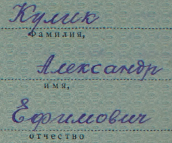 Кулик
фамилия,
Александр
имя,
Ефимович
отчество